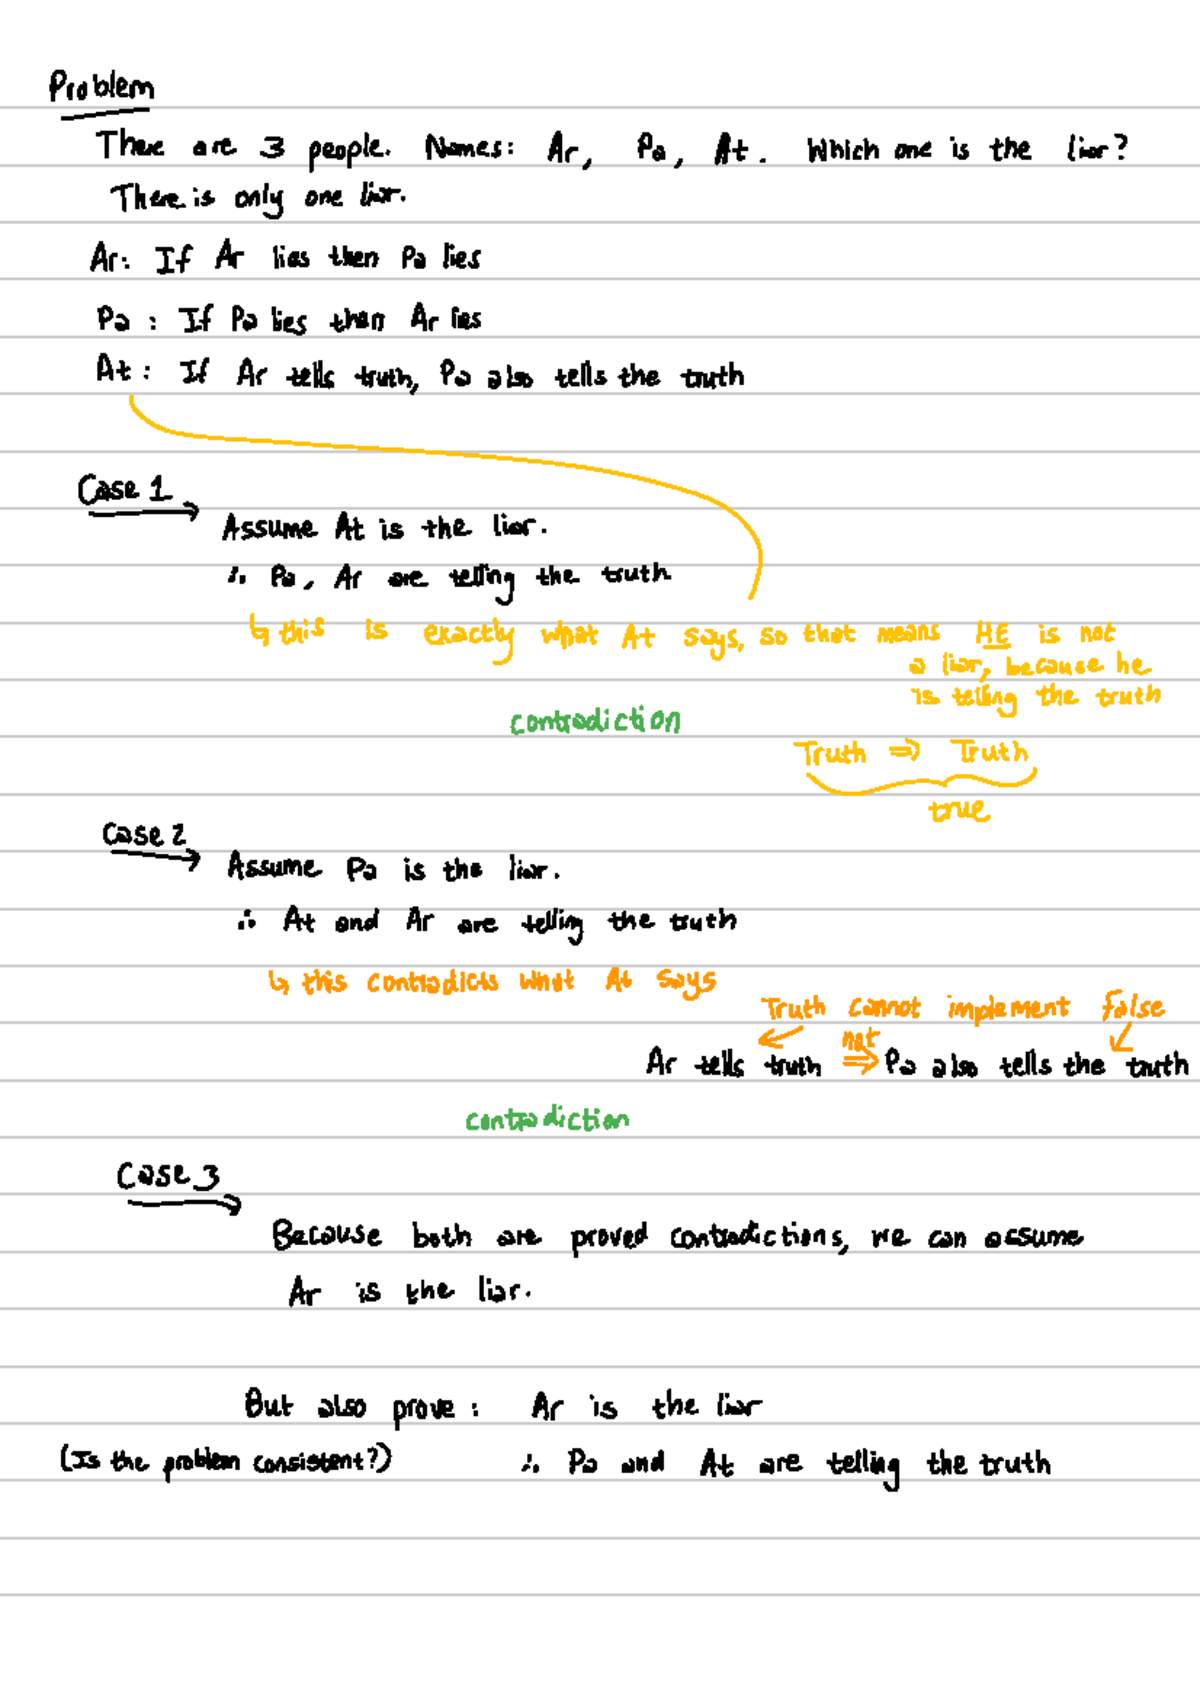 Problem
There are 3 people. Names: Ar, Pa, At. Which one is the liar?
There is only one liar.
Ar: If Ar lies then Pa lies
Pa: If Pa lies then Ar lies
At: If Ar tells truth, Pa also tells the truth
Case 1
Assume At is the liar.
∴ Pa, Ar are telling the truth
↳ this is exactly what At says, so that means HE is not
a liar, because he
is telling the truth
contradiction
Truth ⇒ Truth
true
Case 2
Assume Pa is the liar.
∴ At and Ar are telling the truth
↳ this contradicts what At says
Truth cannot implement false
not
Ar tells truth ⇒ Pa also tells the truth
contradiction
Case 3
Because both are proved contradictions, we can assume
Ar is the liar.
But also prove: Ar is the liar
(Is the problem consistent?) ∴ Pa and At are telling the truth